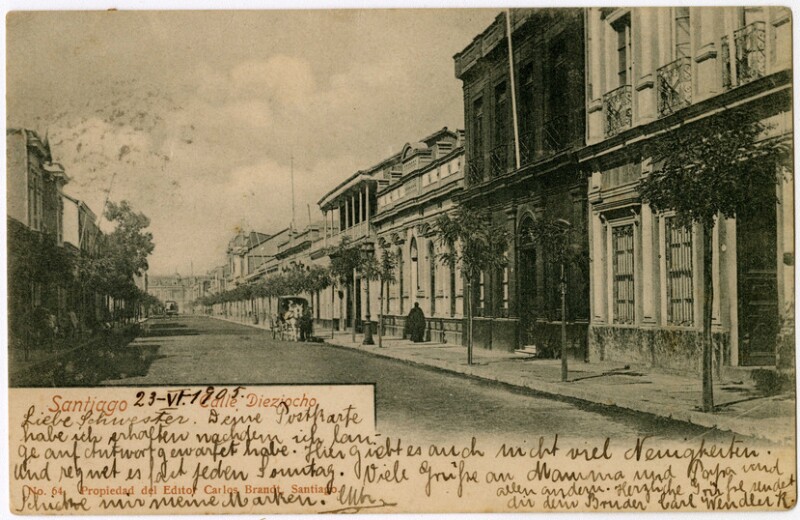 Santiago 23-VI.1905. Calle Dieziocho
Liebe Schwester. Deine Postkarte
habe ich erhalten nachdem ich lan-
ge auf Antwort gewartet habe. Hier giebt es auch nicht viel Neuigkeiten.
und regnet es fast jeden Sonntag. Viele Grüße an Mamma und Papa und
allen andern. Herzliche Grüße sendet
No. 64. Propiedad del Editor Carlos Brandt, Santiago.
Schicke mir meine Marken.
dir dein Bruder Carl Wendler